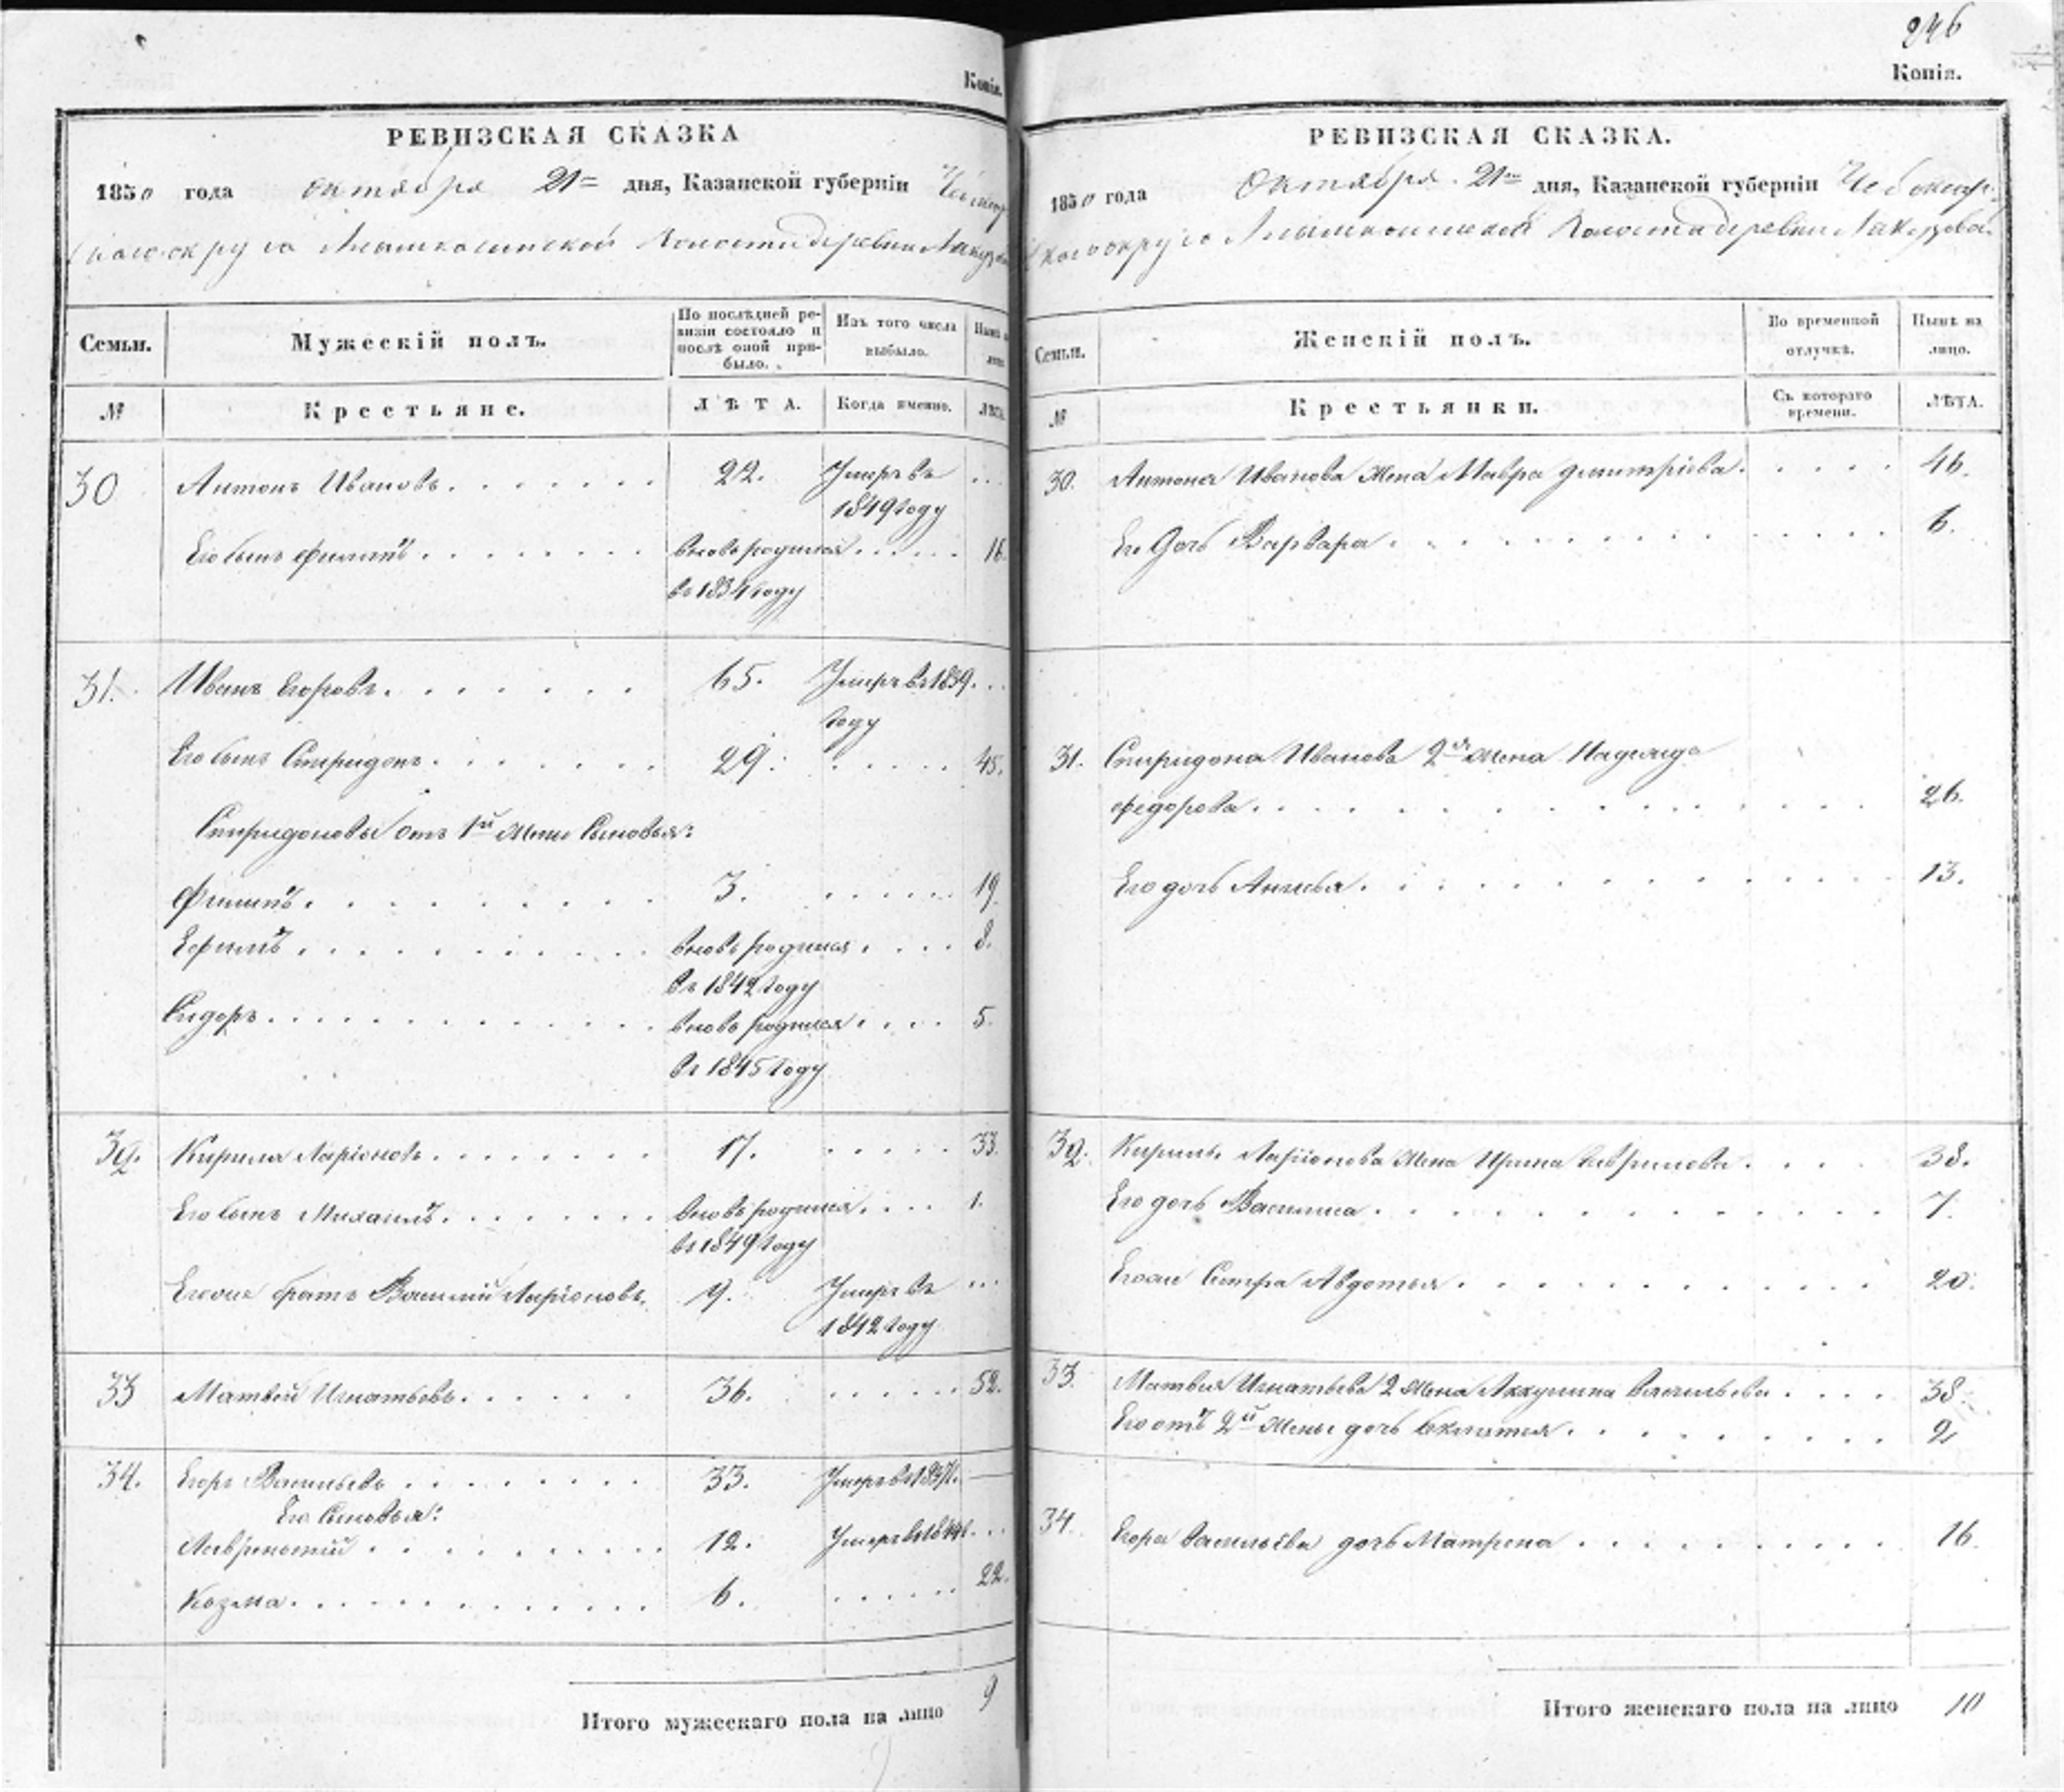 Копія.
РЕВИЗСКАЯ СКАЗКА
1850 года октября 21 дня, Казанской губерніи
округа волости деревни
Семьи.
Мужескій полъ.
По послѣдней ре-
визіи состояло и
послѣ оной при-
было.
Изъ того числа
выбыло.
№
Крестьяне.
ЛѢТА.
Когда именно.
30 Антонъ Ивановъ. 22. Умеръ въ
1849 году
Его сынъ Филипъ. вновь родился 16.
въ 1834 году
31. Иванъ Егоровъ. 65. Умеръ въ 1839.
году
Его сынъ Спиридонъ. 29. 45.
Спиридоновы отъ 1й жены сыновья:
Филипъ. 3. 19.
Ефимъ. вновь родился 8.
въ 1842 году
Сидоръ. вновь родился 5.
въ 1845 году
32. Кирила Ларіоновъ. 17. 33.
Его сынъ Михаилъ. вновь родился 1.
въ 1849 году
Его же братъ Василий Ларіоновъ. 9. Умеръ въ
1842 году
33 Матвей Игнатьевъ. 36. 52.
34. Егоръ Васильевъ 33. Умеръ въ
Его сыновья:
Лаврентий 12. Умеръ въ
Козма. 6. 22.
Итого мужескаго пола на лицо 9
246
Копія.
РЕВИЗСКАЯ СКАЗКА.
1850 года Октября 21 дня, Казанской губерніи Чебоксар-
скаго округа волости деревни
Семьи.
Женскій полъ.
Во временной
отлучкѣ.
Нынѣ на
лицо.
№
Крестьянки.
Съ котораго
времени.
ЛѢТА.
30. Антона Иванова жена Мавра Дмитріева. 46.
Его дочь Варвара. 6.
31. Спиридона Иванова 2я жена Надежда
Федорова. 26.
Его дочь Анисья. 13.
32. Кирилы Ларіонова жена Ирина Гаврилова. 38.
Его дочь Василиса. 7.
Его же сестра Авдотья. 20.
33. Матвея Игнатьева 2 жена Акулина Васильева. 38.
Его отъ 2й жены дочь 2
34. Егора Васильева дочь Матрена 16.
Итого женскаго пола на лицо 10